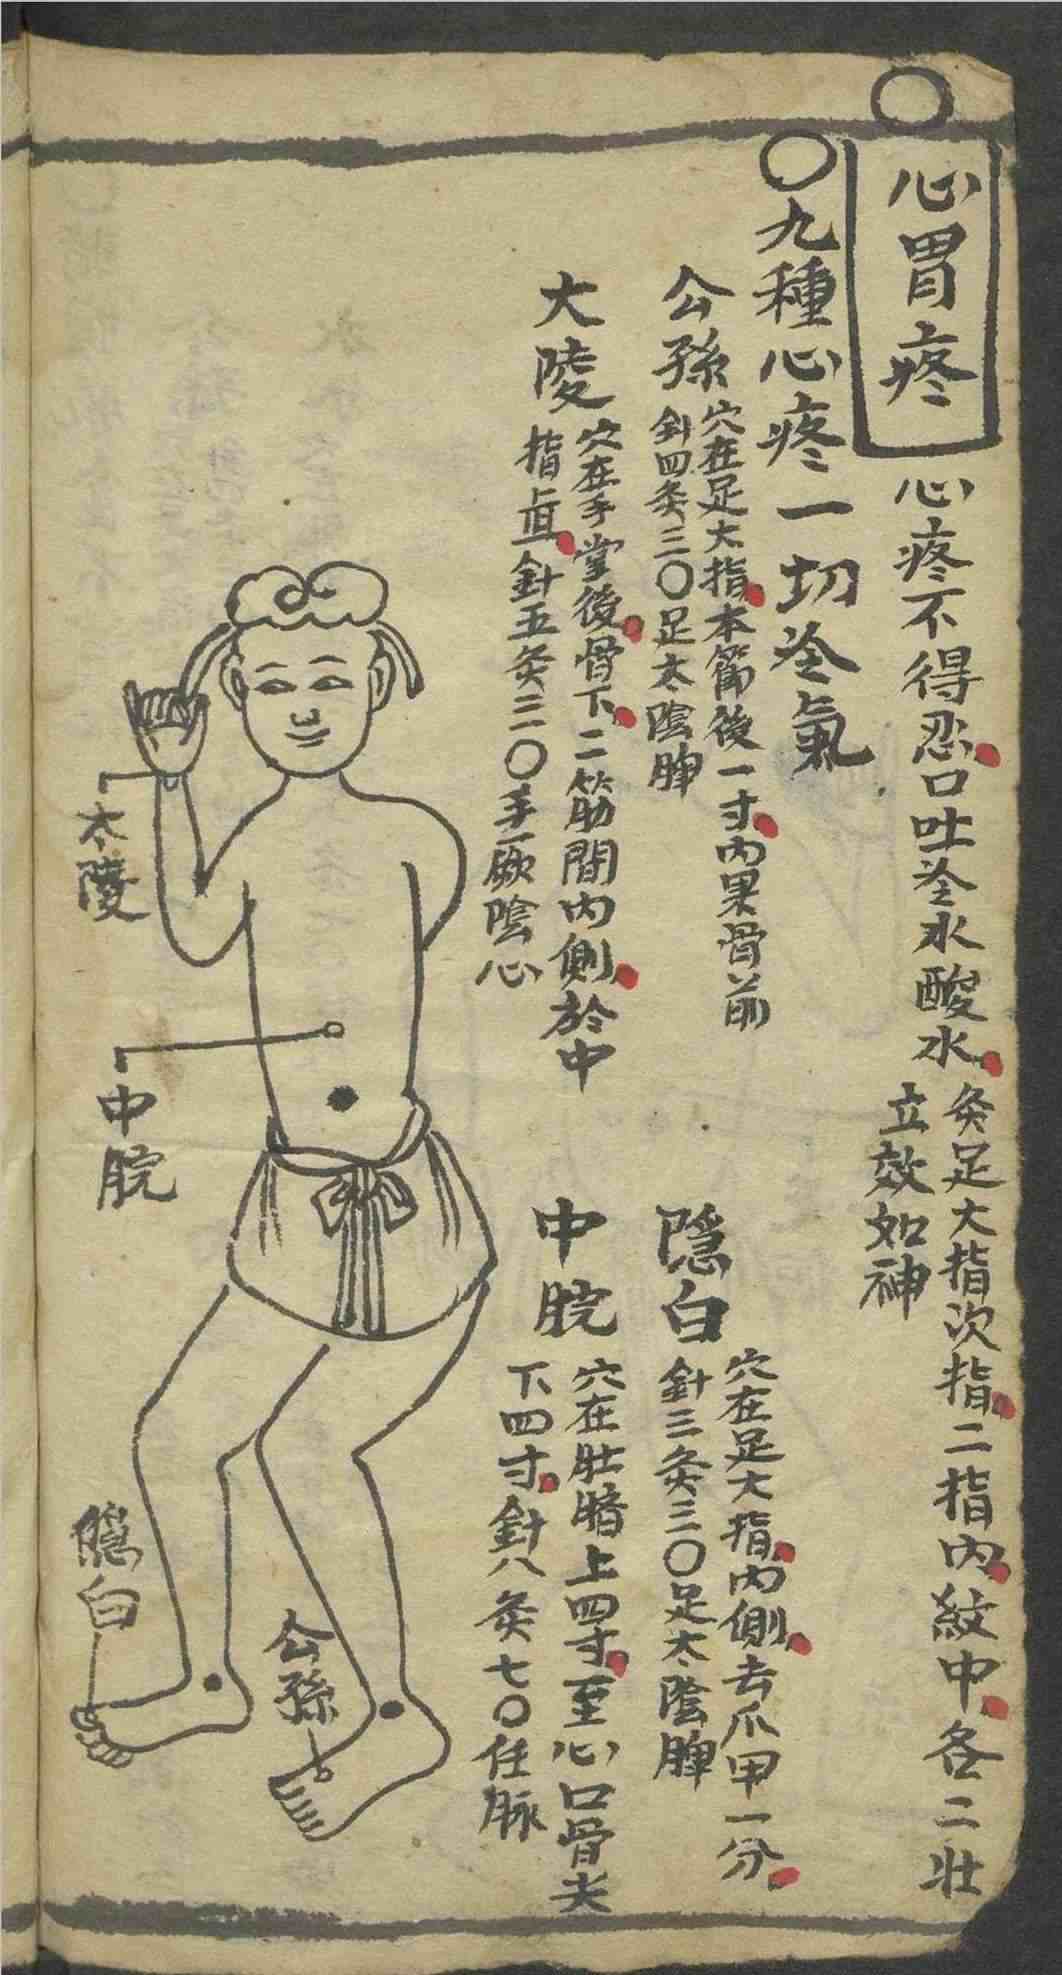 ○
心胃疼
心疼不得忍口吐冷水酸水
灸足大指次指二指內紋中各二壯
立效如神
○九種心疼一切冷氣
公孫
穴在足大指本節後一寸內果骨前
針四灸三○足太陰脾
隱白
穴在足大指內側去爪甲一分
針三灸三○足太陰脾
大陵
穴在手掌後骨下二筋間內側於中
指直針五灸三○手厥陰心
中脘
穴在肚臍上四寸至心口骨夫
下四寸針八灸七○任脉
太陵
中脘
隱白
公孫